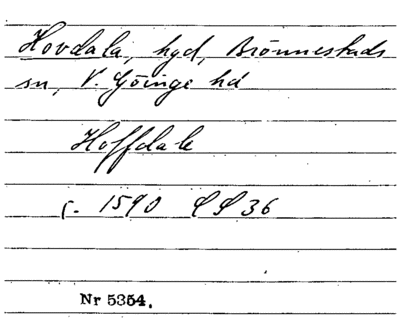 Hovdala, hgd, Brönnestads
sn, V. Göinge hd
Hoffdale
c. 1590 LL 36
Nr 5354.